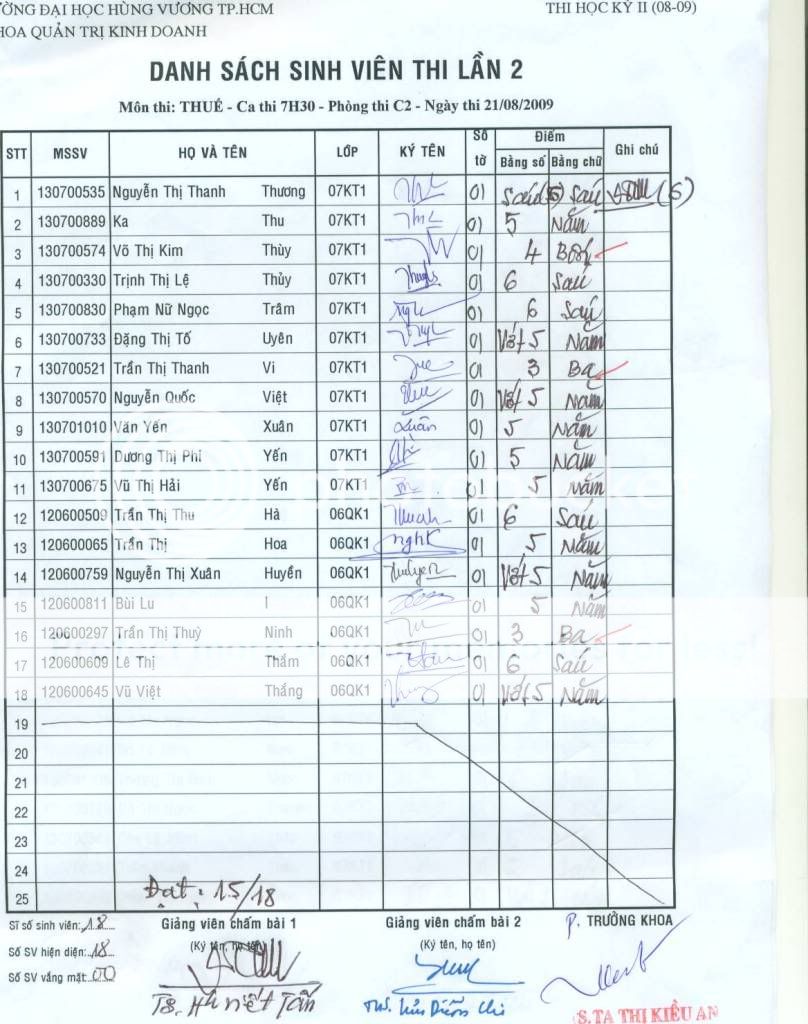 ỜNG ĐẠI HỌC HÙNG VƯƠNG TP.HCM THI HỌC KỲ II (08-09)
HOA QUẢN TRỊ KINH DOANH
DANH SÁCH SINH VIÊN THI LẦN 2
Môn thi: THUẾ - Ca thi 7H30 - Phòng thi C2 - Ngày thi 21/08/2009
STT MSSV HỌ VÀ TÊN LỚP KÝ TÊN Số tờ Điểm Ghi chú
Bằng số Bằng chữ
1 130700535 Nguyễn Thị Thanh Thương 07KT1 01 Sáu (6) Sáu (6)
2 130700889 Ka Thu 07KT1 01 5 Năm
3 130700574 Võ Thị Kim Thùy 07KT1 01 4 Bốn
4 130700330 Trịnh Thị Lệ Thủy 07KT1 01 6 Sáu
5 130700830 Phạm Nữ Ngọc Trâm 07KT1 01 6 Sáu
6 130700733 Đặng Thị Tố Uyên 07KT1 01 Vớt 5 Năm
7 130700521 Trần Thị Thanh Vi 07KT1 01 3 Ba
8 130700570 Nguyễn Quốc Việt 07KT1 01 Vớt 5 Năm
9 130701010 Văn Yến Xuân 07KT1 Xuân 01 5 Năm
10 130700591 Dương Thị Phi Yến 07KT1 01 5 Năm
11 130700675 Vũ Thị Hải Yến 07KT1 01 5 Năm
12 120600509 Trần Thị Thu Hà 06QK1 01 6 Sáu
13 120600065 Trần Thị Hoa 06QK1 01 5 Năm
14 120600759 Nguyễn Thị Xuân Huyền 06QK1 01 Vớt 5 Năm
15 120600811 Bùi Lu I 06QK1 01 5 Năm
16 120600297 Trần Thị Thuỳ Ninh 06QK1 01 3 Ba
17 120600609 Lê Thị Thắm 06QK1 01 6 Sáu
18 120600645 Vũ Việt Thắng 06QK1 01 Vớt 5 Năm
19
20
21
22
23
24
25 Đạt: 15/18
Sĩ số sinh viên: 18 Giảng viên chấm bài 1 Giảng viên chấm bài 2 P. TRƯỞNG KHOA
Số SV hiện diện: 18 (Ký tên, họ tên) (Ký tên, họ tên)
Số SV vắng mặt: 00
Ts. Hồ Viết Tấn ThS.
S. TẠ THỊ KIỀU AN